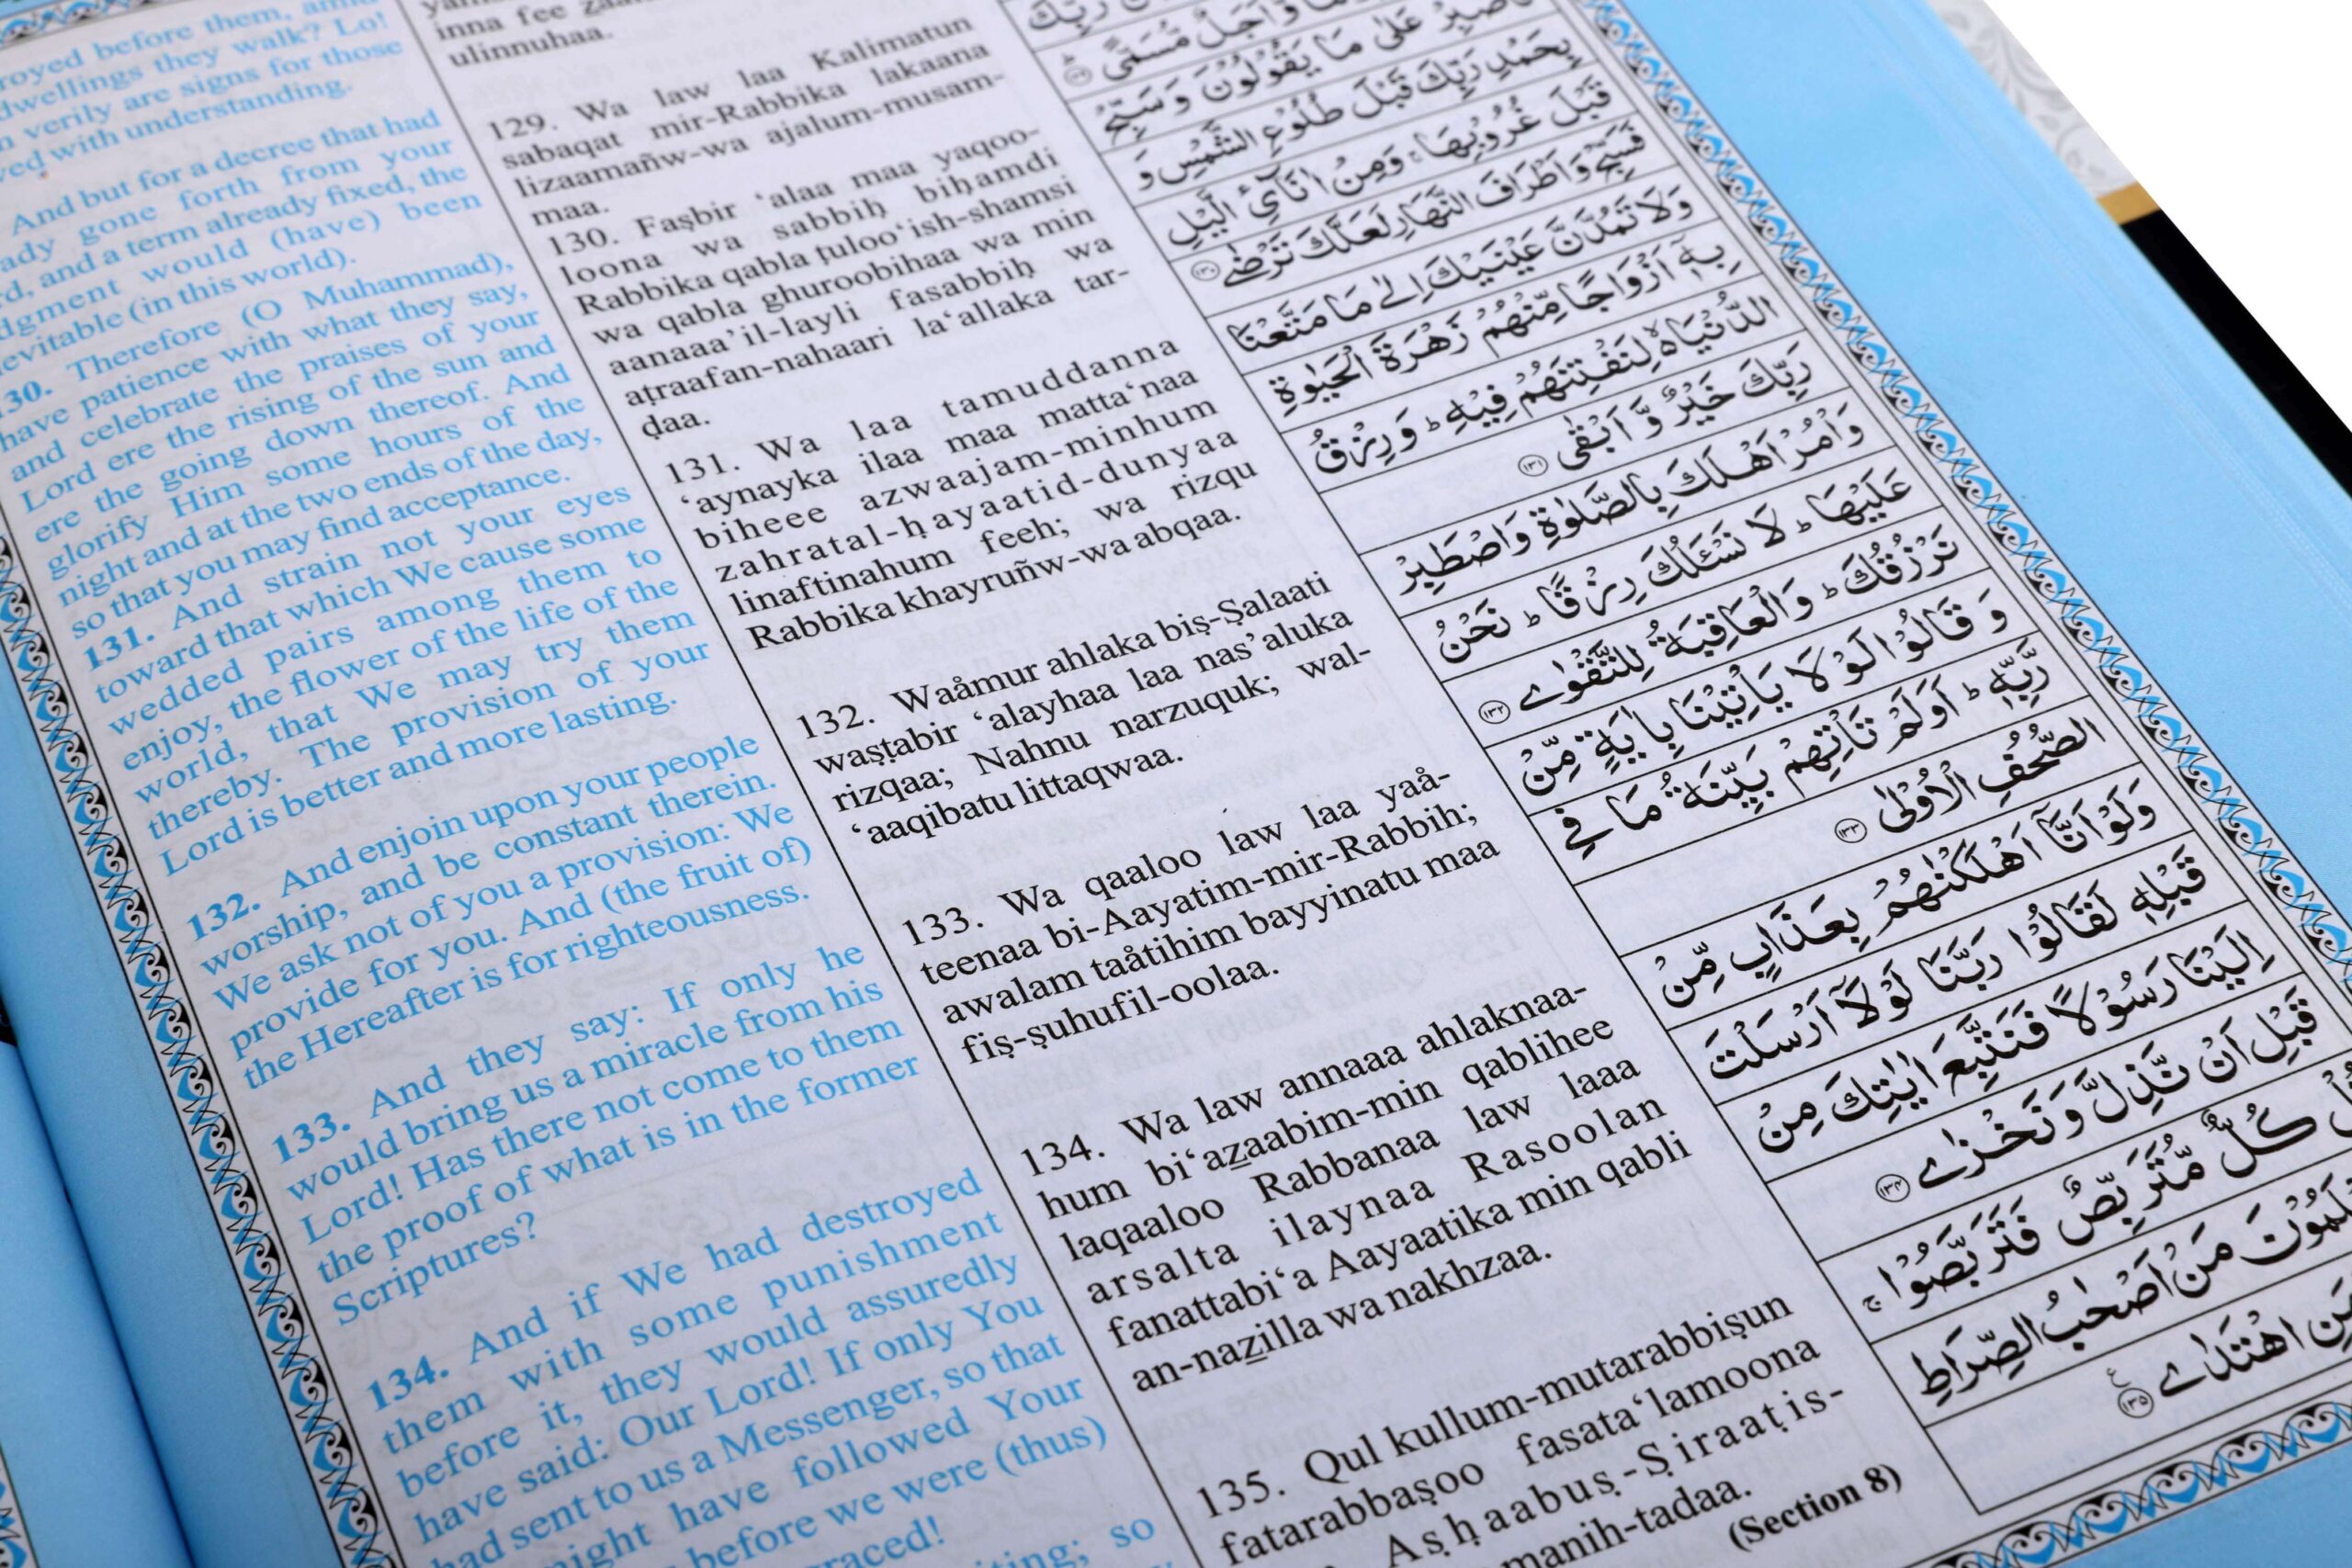 royed before them,
dwellings they walk? Lo!
verily are signs for those
with understanding.
And but for a decree that had
gone forth from your
and a term already fixed, the
would (have) been
(in this world).
Therefore (O Muhammad),
have patience with what they say,
and celebrate the praises of your
Lord ere the rising of the sun and
ere the going down thereof. And
glorify Him some hours of the
night and at the two ends of the day,
so that you may find acceptance.
131. And strain not your eyes
toward that which We cause some
wedded pairs among them to
enjoy, the flower of the life of the
world, that We may try them
thereby. The provision of your
Lord is better and more lasting.
132. And enjoin upon your people
worship, and be constant therein.
We ask not of you a provision: We
provide for you. And (the fruit of)
the Hereafter is for righteousness.
133. And they say: If only he
would bring us a miracle from his
Lord! Has there not come to them
the proof of what is in the former
Scriptures?
134. And if We had destroyed
them with some punishment
before it, they would assuredly
have said: Our Lord! If only You
had sent to us a Messenger, so that
might have followed Your
before we were (thus)
so
inna fee
ulinnuhaa.
129. Wa law laa Kalimatun
sabaqat mir-Rabbika lakaana
lizaamañw-wa ajalum-musam-
maa.
130. Faṣbir ‘alaa maa yaqoo-
loona wa sabbiḥ biḥamdi
Rabbika qabla ṭuloo‘ish-shamsi
wa qabla ghuroobihaa wa min
aanaaa’il-layli fasabbiḥ wa
aṭraafan-nahaari la‘allaka tar-
ḍaa.
131. Wa laa tamuddanna
‘aynayka ilaa maa matta‘naa
biheee azwaajam-minhum
zahratal-ḥayaatid-dunyaa
linaftinahum feeh; wa rizqu
Rabbika khayruñw-wa abqaa.
132. Waåmur ahlaka biṣ-Ṣalaati
waṣṭabir ‘alayhaa laa nas’aluka
rizqaa; Nahnu narzuquk; wal-
‘aaqibatu littaqwaa.
133. Wa qaaloo law laa yaå-
teenaa bi-Aayatim-mir-Rabbih;
awalam taåtihim bayyinatu maa
fiṣ-ṣuhufil-oolaa.
134. Wa law annaaa ahlaknaa-
hum bi‘azaabim-min qablihee
laqaaloo Rabbanaa law laaa
arsalta ilaynaa Rasoolan
fanattabi‘a Aayaatika min qabli
an-nazilla wa nakhzaa.
135. Qul kullum-mutarabbiṣun
fatarabbaṣoo fasata‘lamoona
Aṣḥaabuṣ-Ṣiraaṭis-
manih-tadaa.
(Section 8)
رَبِّكَ
وَّ اَجَلٌ مُّسَمًّى ۱۲۹
فَاصْبِرْ عَلٰى مَا يَقُوْلُوْنَ وَ سَبِّحْ
بِحَمْدِ رَبِّكَ قَبْلَ طُلُوْعِ الشَّمْسِ وَ
قَبْلَ غُرُوْبِهَا ۚ وَمِنْ اٰنَآئِ الَّيْلِ
فَسَبِّحْ وَاَطْرَافَ النَّهَارِ لَعَلَّكَ تَرْضٰى ۱۳۰
وَلَا تَمُدَّنَّ عَيْنَيْكَ اِلٰى مَا مَتَّعْنَا
بِهٖۤ اَزْوَاجًا مِّنْهُمْ زَهْرَةَ الْحَيٰوةِ
الدُّنْيَا ۙ لِنَفْتِنَهُمْ فِيْهِ ؕ وَ رِزْقُ
رَبِّكَ خَيْرٌ وَّ اَبْقٰى ۱۳۱
وَاْمُرْ اَهْلَكَ بِالصَّلٰوةِ وَاصْطَبِرْ
عَلَيْهَا ؕ لَا نَسْـَٔلُكَ رِزْقًا ؕ نَحْنُ
نَرْزُقُكَ ؕ وَالْعَاقِبَةُ لِلتَّقْوٰى ۱۳۲
وَ قَالُوْا لَوْ لَا يَاْتِيْنَا بِاٰيَةٍ مِّنْ
رَّبِّهٖ ؕ اَوَلَمْ تَاْتِهِمْ بَيِّنَةُ مَا فِى
الصُّحُفِ الْاُوْلٰى ۱۳۳
وَلَوْ اَنَّاۤ اَهْلَكْنٰهُمْ بِعَذَابٍ مِّنْ
قَبْلِهٖ لَقَالُوْا رَبَّنَا لَوْلَاۤ اَرْسَلْتَ
اِلَيْنَا رَسُوْلًا فَنَتَّبِعَ اٰيٰتِكَ مِنْ
قَبْلِ اَنْ نَّذِلَّ وَ نَخْزٰى ۱۳۴
كُلٌّ مُّتَرَبِّصٌ فَتَرَبَّصُوْا ۚ
مَنْ اَصْحٰبُ الصِّرَاطِ
اهْتَدٰى ۱۳۵